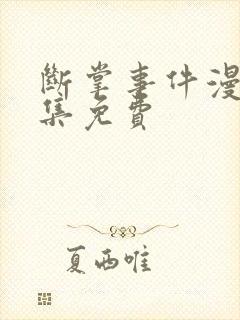 斷掌事件漫
集免費
夏西唯